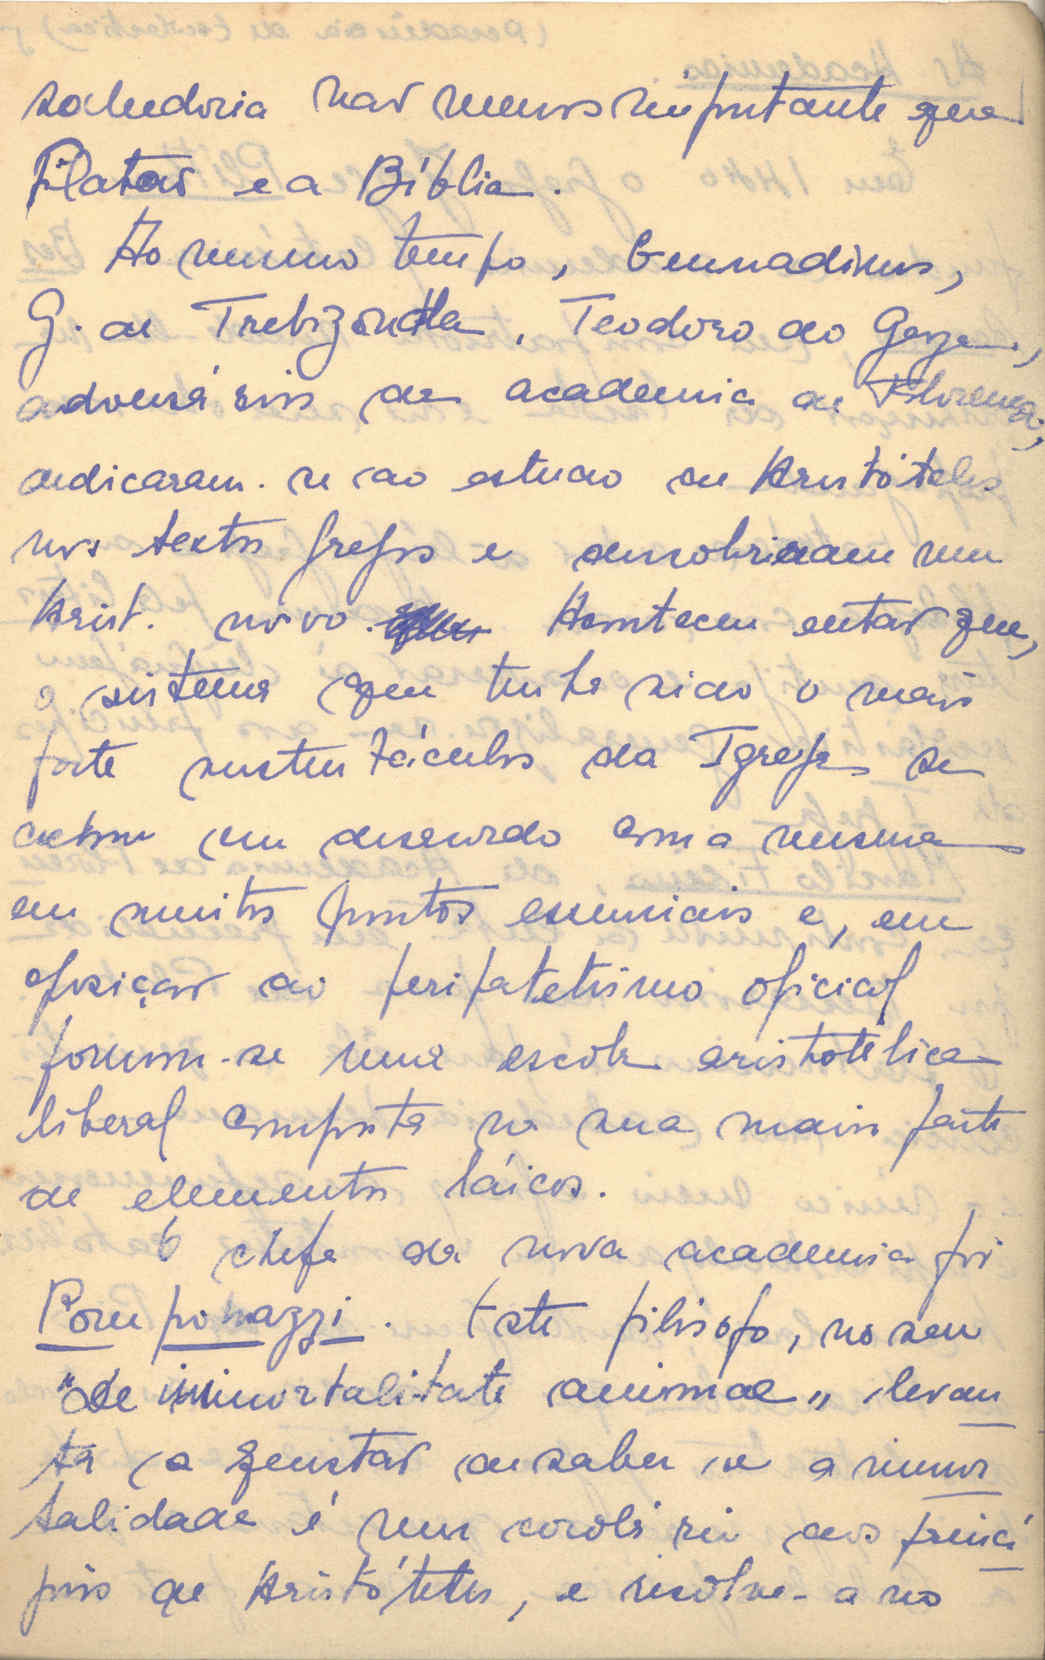 sabedoria não menos importante que
Platão e a Bíblia.
Ao mesmo tempo, Gennadinus,
G. de Trebizonda, Teodoro de Gaza,
adversários da academia de Florença,
dedicaram-se ao estudo de Aristóteles
nos textos gregos e descobriram um
Arist. novo. Aconteceu então que,
o sistema que tinha sido o mais
forte sustentáculo da Igreja se
achou em desacordo com a mesma
em muitos pontos essenciais e, em
oposição ao peripatetismo oficial
formou-se uma escola aristotélica
liberal composta na sua maior parte
de elementos láicos.
O chefe da nova academia foi
Pomponazzi. Este filósofo, no seu
"De immortalitate animae" levan
ta a questão de saber se a imor
talidade é um corolário dos princí
pios de Aristóteles, e resolve-a no